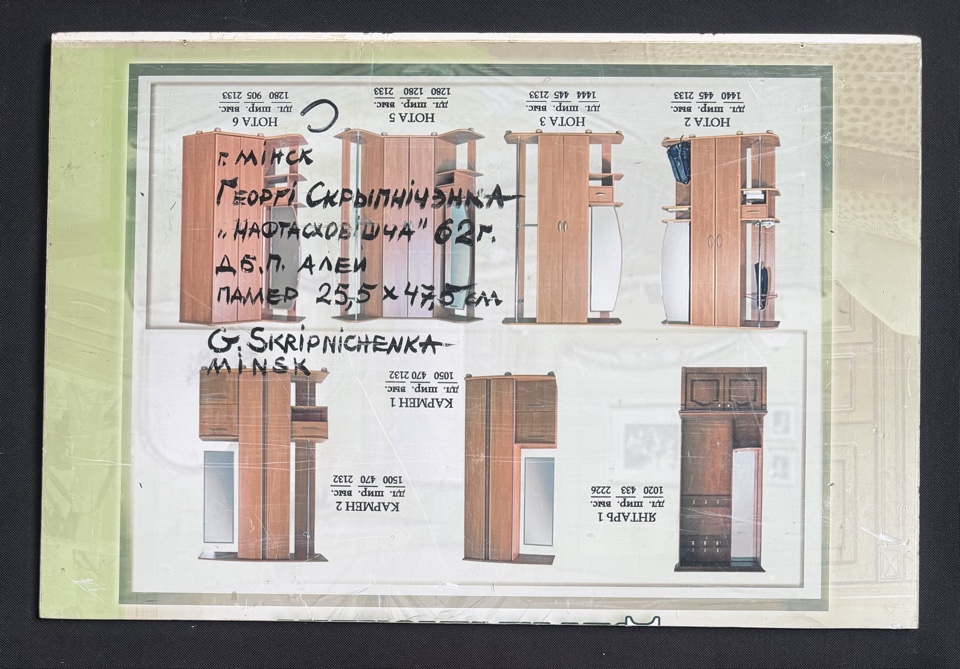 г. Мінск
Георгі Скрыпнічэнка
„Нафтасховішча" 62г.
Д В.П. Алей
памер 25,5 x 47,5 см
G. Skripnichenka
Minsk
НОТА 2
дл. шир. выс.
1440 445 2133
НОТА 3
дл. шир. выс.
1444 445 2133
НОТА 5
дл. шир. выс.
1280 1280 2133
НОТА 6
дл. шир. выс.
1280 905 2133
ЯНТАРЬ 1
дл. шир. выс.
1020 433 2226
КАРМЕН 1
дл. шир. выс.
1050 470 2132
КАРМЕН 2
дл. шир. выс.
1500 470 2132